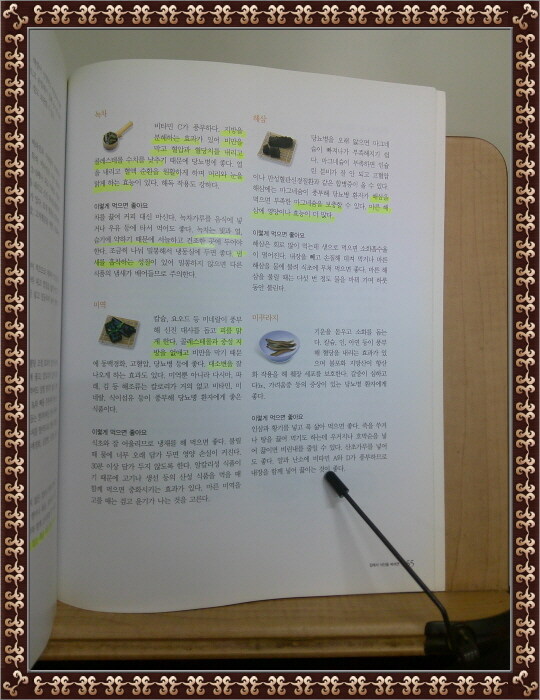 녹차
비타민 C가 풍부하다. 지방을
분해하는 효과가 있어 비만을
막고 혈압과 혈당치를 내리고
콜레스테롤 수치를 낮추기 때문에 당뇨병에 좋다. 열
을 내리고 혈액 순환을 원활하게 하며 머리와 눈을
맑게 하는 효능이 있다. 해독 작용도 강하다.
이렇게 먹으면 좋아요
차를 끓여 커피 대신 마신다. 녹차가루를 음식에 넣
거나 우유 등에 타서 먹어도 좋다. 녹차는 빛과 열,
습기에 약하기 때문에 서늘하고 건조한 곳에 두어야
한다. 조금씩 나눠 밀봉해서 냉동실에 두면 좋다. 냄
새를 흡착하는 성질이 있어 밀봉하지 않으면 다른
식품의 냄새가 배어들므로 주의한다.
미역
칼슘, 요오드 등 미네랄이 풍부
해 신진 대사를 돕고 피를 맑
게 한다. 콜레스테롤과 중성 지
방을 없애고 비만을 막기 때문
에 동맥경화, 고혈압, 당뇨병 등에 좋다. 대소변을 잘
나오게 하는 효과도 있다. 미역뿐 아니라 다시마, 파
래, 김 등 해조류는 칼로리가 거의 없고 비타민, 미
네랄, 식이섬유 등이 풍부해 당뇨병 환자에게 좋은
식품이다.
이렇게 먹으면 좋아요
식초와 잘 어울리므로 냉채를 해 먹으면 좋다. 불릴
때 물에 너무 오래 담가 두면 영양 손실이 커진다.
30분 이상 담가 두지 않도록 한다. 알칼리성 식품이
기 때문에 고기나 생선 등의 산성 식품을 먹을 때
함께 먹으면 중화시키는 효과가 있다. 마른 미역을
고를 때는 검고 윤기가 나는 것을 고른다.
해삼
당뇨병을 오래 앓으면 마그네
슘이 빠져나가 부족해지기 쉽
다. 마그네슘이 부족하면 인슐
린 분비가 잘 안 되고 고혈압
이나 만성혈관신장질환과 같은 합병증이 올 수 있다.
해삼에는 마그네슘이 풍부해 당뇨병 환자가 해삼을
먹으면 부족한 마그네슘을 보충할 수 있다. 마른 해
삼에 영양이나 효능이 더 많다.
이렇게 먹으면 좋아요
해삼은 회로 많이 먹는데 생으로 먹으면 소화흡수율
이 떨어진다. 내장을 빼고 손질해 데쳐 먹거나 마른
해삼을 물에 불려 식초에 무쳐 먹으면 좋다. 마른 해
삼을 불릴 때는 다섯 번 정도 물을 바꿔 가며 하룻
동안 불린다.
미꾸라지
기운을 돋우고 소화를 돕는
다. 칼슘, 인, 아연 등이 풍부
해 혈당을 내리는 효과가 있
으며 불포화 지방산이 항산
화 작용을 해 췌장 세포를 보호한다. 갈증이 심하고
다뇨, 가려움증 등의 증상이 있는 당뇨병 환자에게
좋다.
이렇게 먹으면 좋아요
인삼과 황기를 넣고 푹 삶아 먹으면 좋다. 죽을 쑤거
나 탕을 끓여 먹기도 하는데 우거지나 호박순을 넣
어 끓이면 비린내를 줄일 수 있다. 산초가루를 넣어
도 좋다. 알과 난소에 비타민 A와 D가 풍부하므로
내장을 함께 넣어 끓이는 것이 좋다.